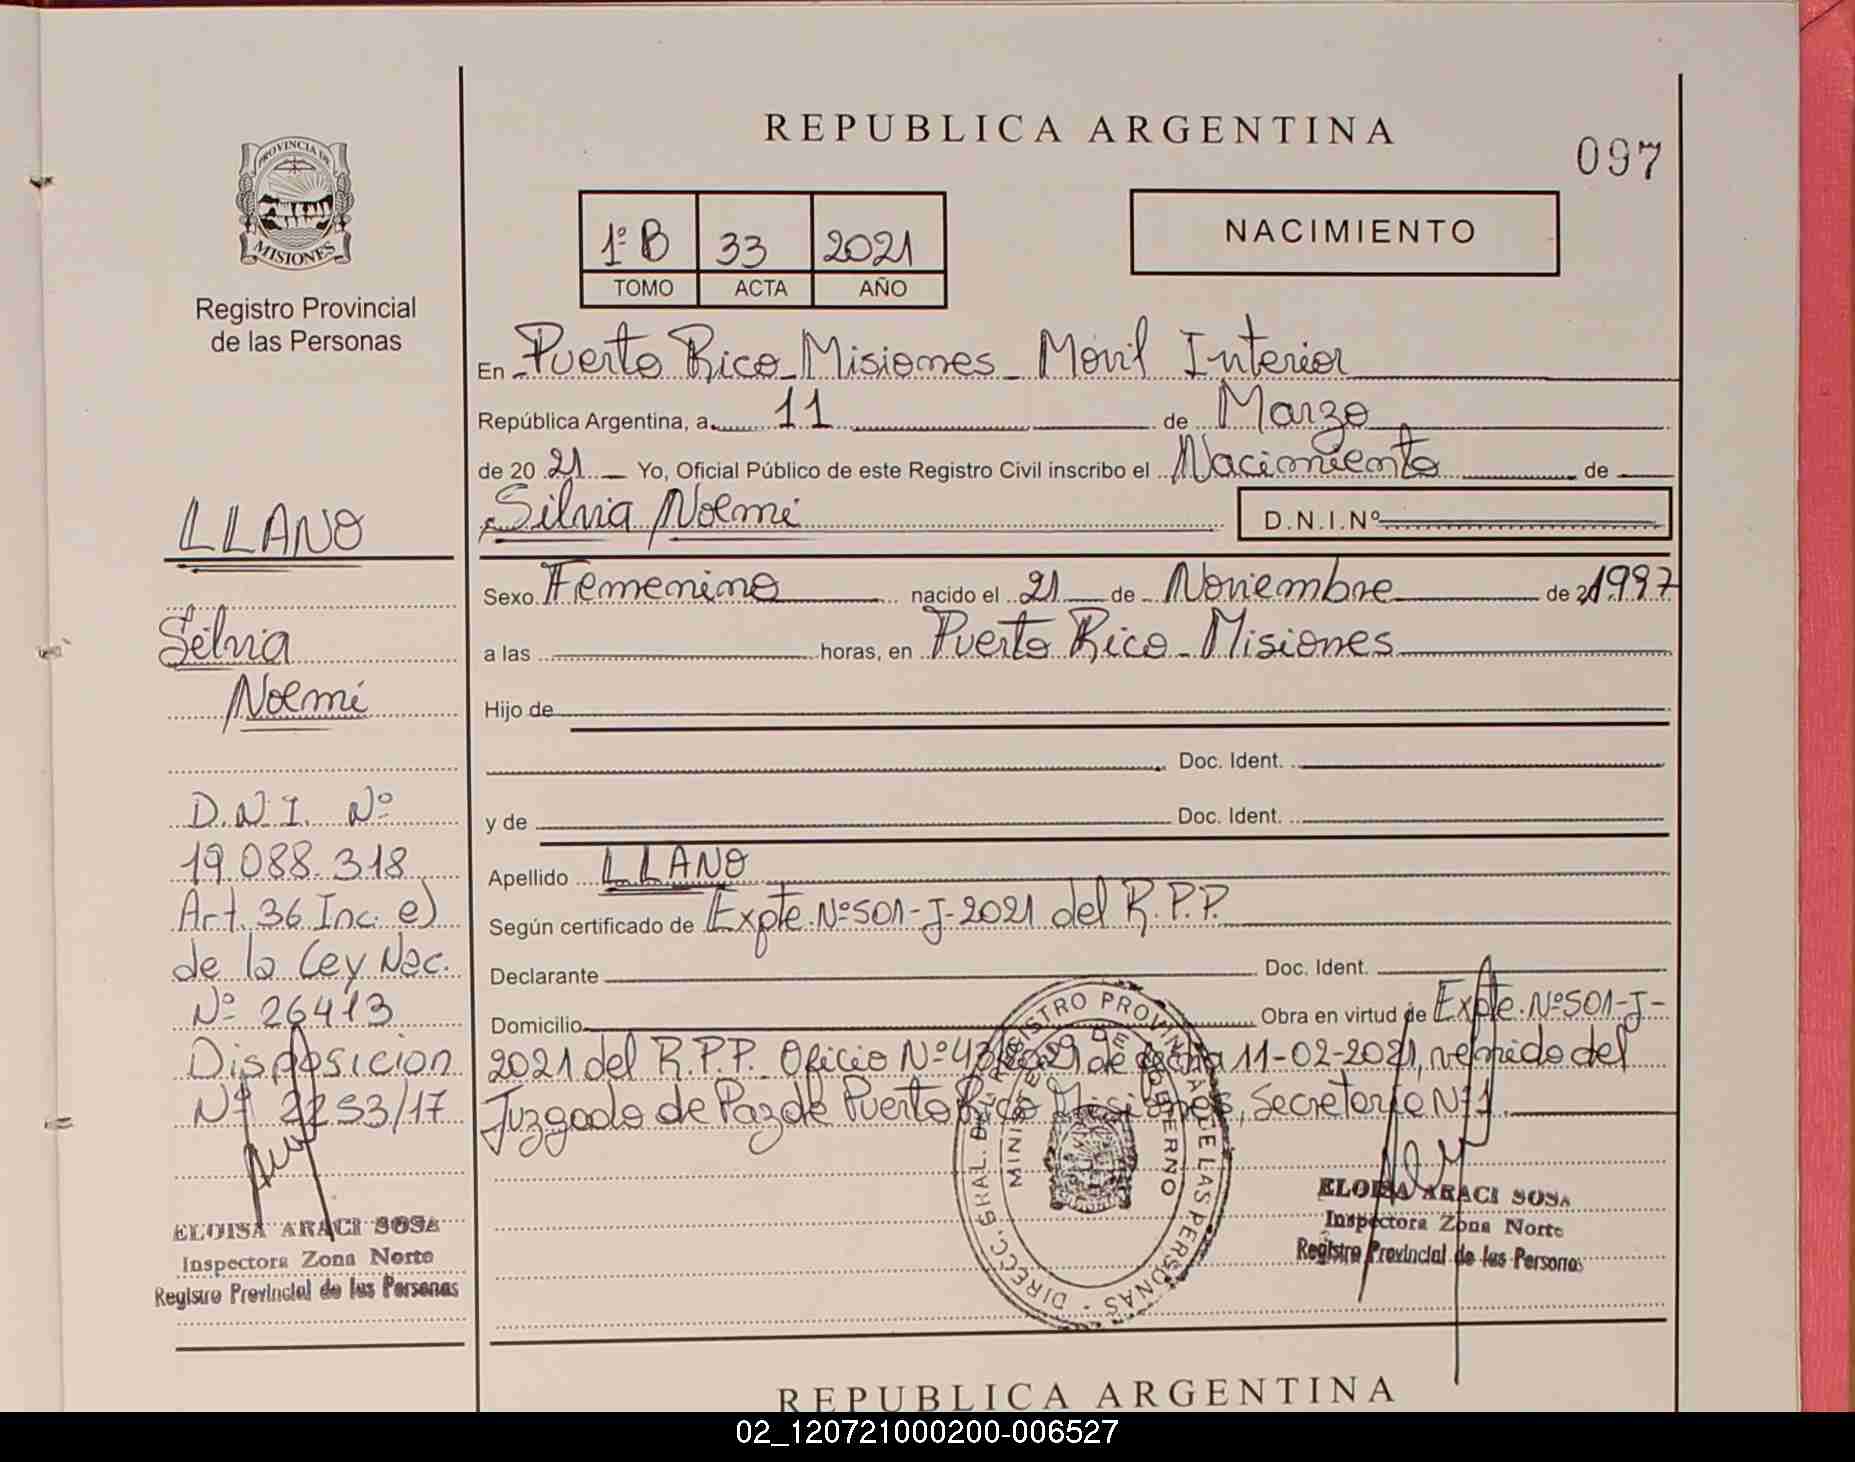 REPUBLICA ARGENTINA
097
PROVINCIA DE
MISIONES
Registro Provincial
de las Personas
1º B 33 2021
TOMO ACTA AÑO
NACIMIENTO
En Puerto Rico - Misiones - Móvil Interior
República Argentina, a 11 de Marzo
de 20 21 Yo, Oficial Público de este Registro Civil inscribo el Nacimiento de
Silvia Noemi D.N.I.Nº
Sexo Femenino nacido el 21 de Noviembre de 1997
a las horas, en Puerto Rico - Misiones
Hijo de
Doc. Ident.
y de Doc. Ident.
Apellido LLANO
Según certificado de Expte. Nº 501-J-2021 del R.P.P.
Declarante Doc. Ident.
Domicilio Obra en virtud de Expte. Nº 501-J-
2021 del R.P.P. Oficio Nº de fecha 11-02-2021, remido del
Juzgado de Paz de Puerto Rico Misiones, Secretario Nº 1.
DIRECC. GRAL. DEL REGISTRO PROVINCIAL DE LAS PERSONAS
MINISTERIO DE GOBIERNO
ELOISA ARACI SOSA
Inspectora Zona Norte
Registro Provincial de las Personas
LLANO
Silvia
Noemi
D.N.I. Nº
19.088.318
Art. 36 Inc. e)
de la Ley Nac.
Nº 26413
Disposicion
Nº 2253/17
ELOISA ARACI SOSA
Inspectora Zona Norte
Registro Provincial de las Personas
REPUBLICA ARGENTINA
02_120721000200-006527